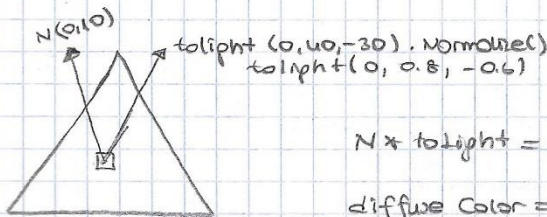 N(0,1,0)
toLight (0,40,-30).Normalize()
toLight(0, 0.8, -0.6)
N * toLight =
diffuse Color =